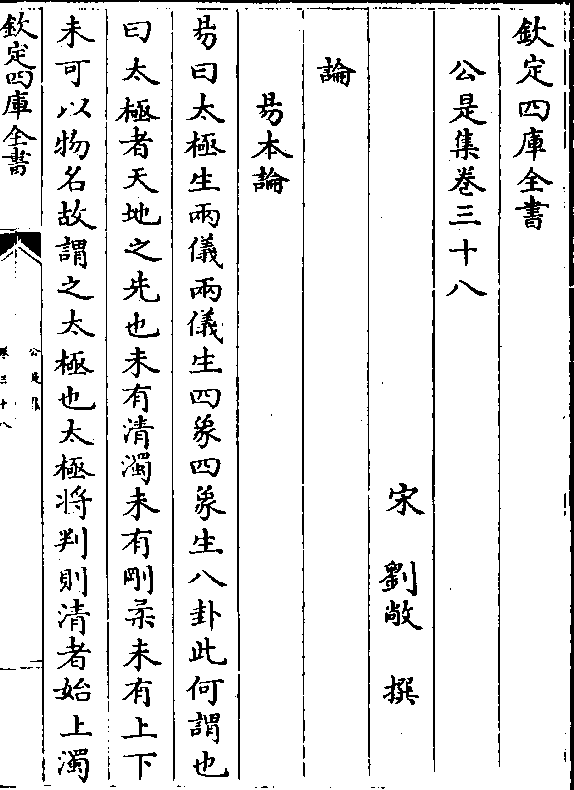 欽定四庫全書
公是集卷三十八
宋 劉敞 撰
論
易本論
易曰太極生兩儀兩儀生四象四象生八卦此何謂也
曰太極者天地之先也未有清濁未有剛柔未有上下
未可以物名故謂之太極也太極將判則清者始上濁
欽定四庫全書
公是集
卷三十八